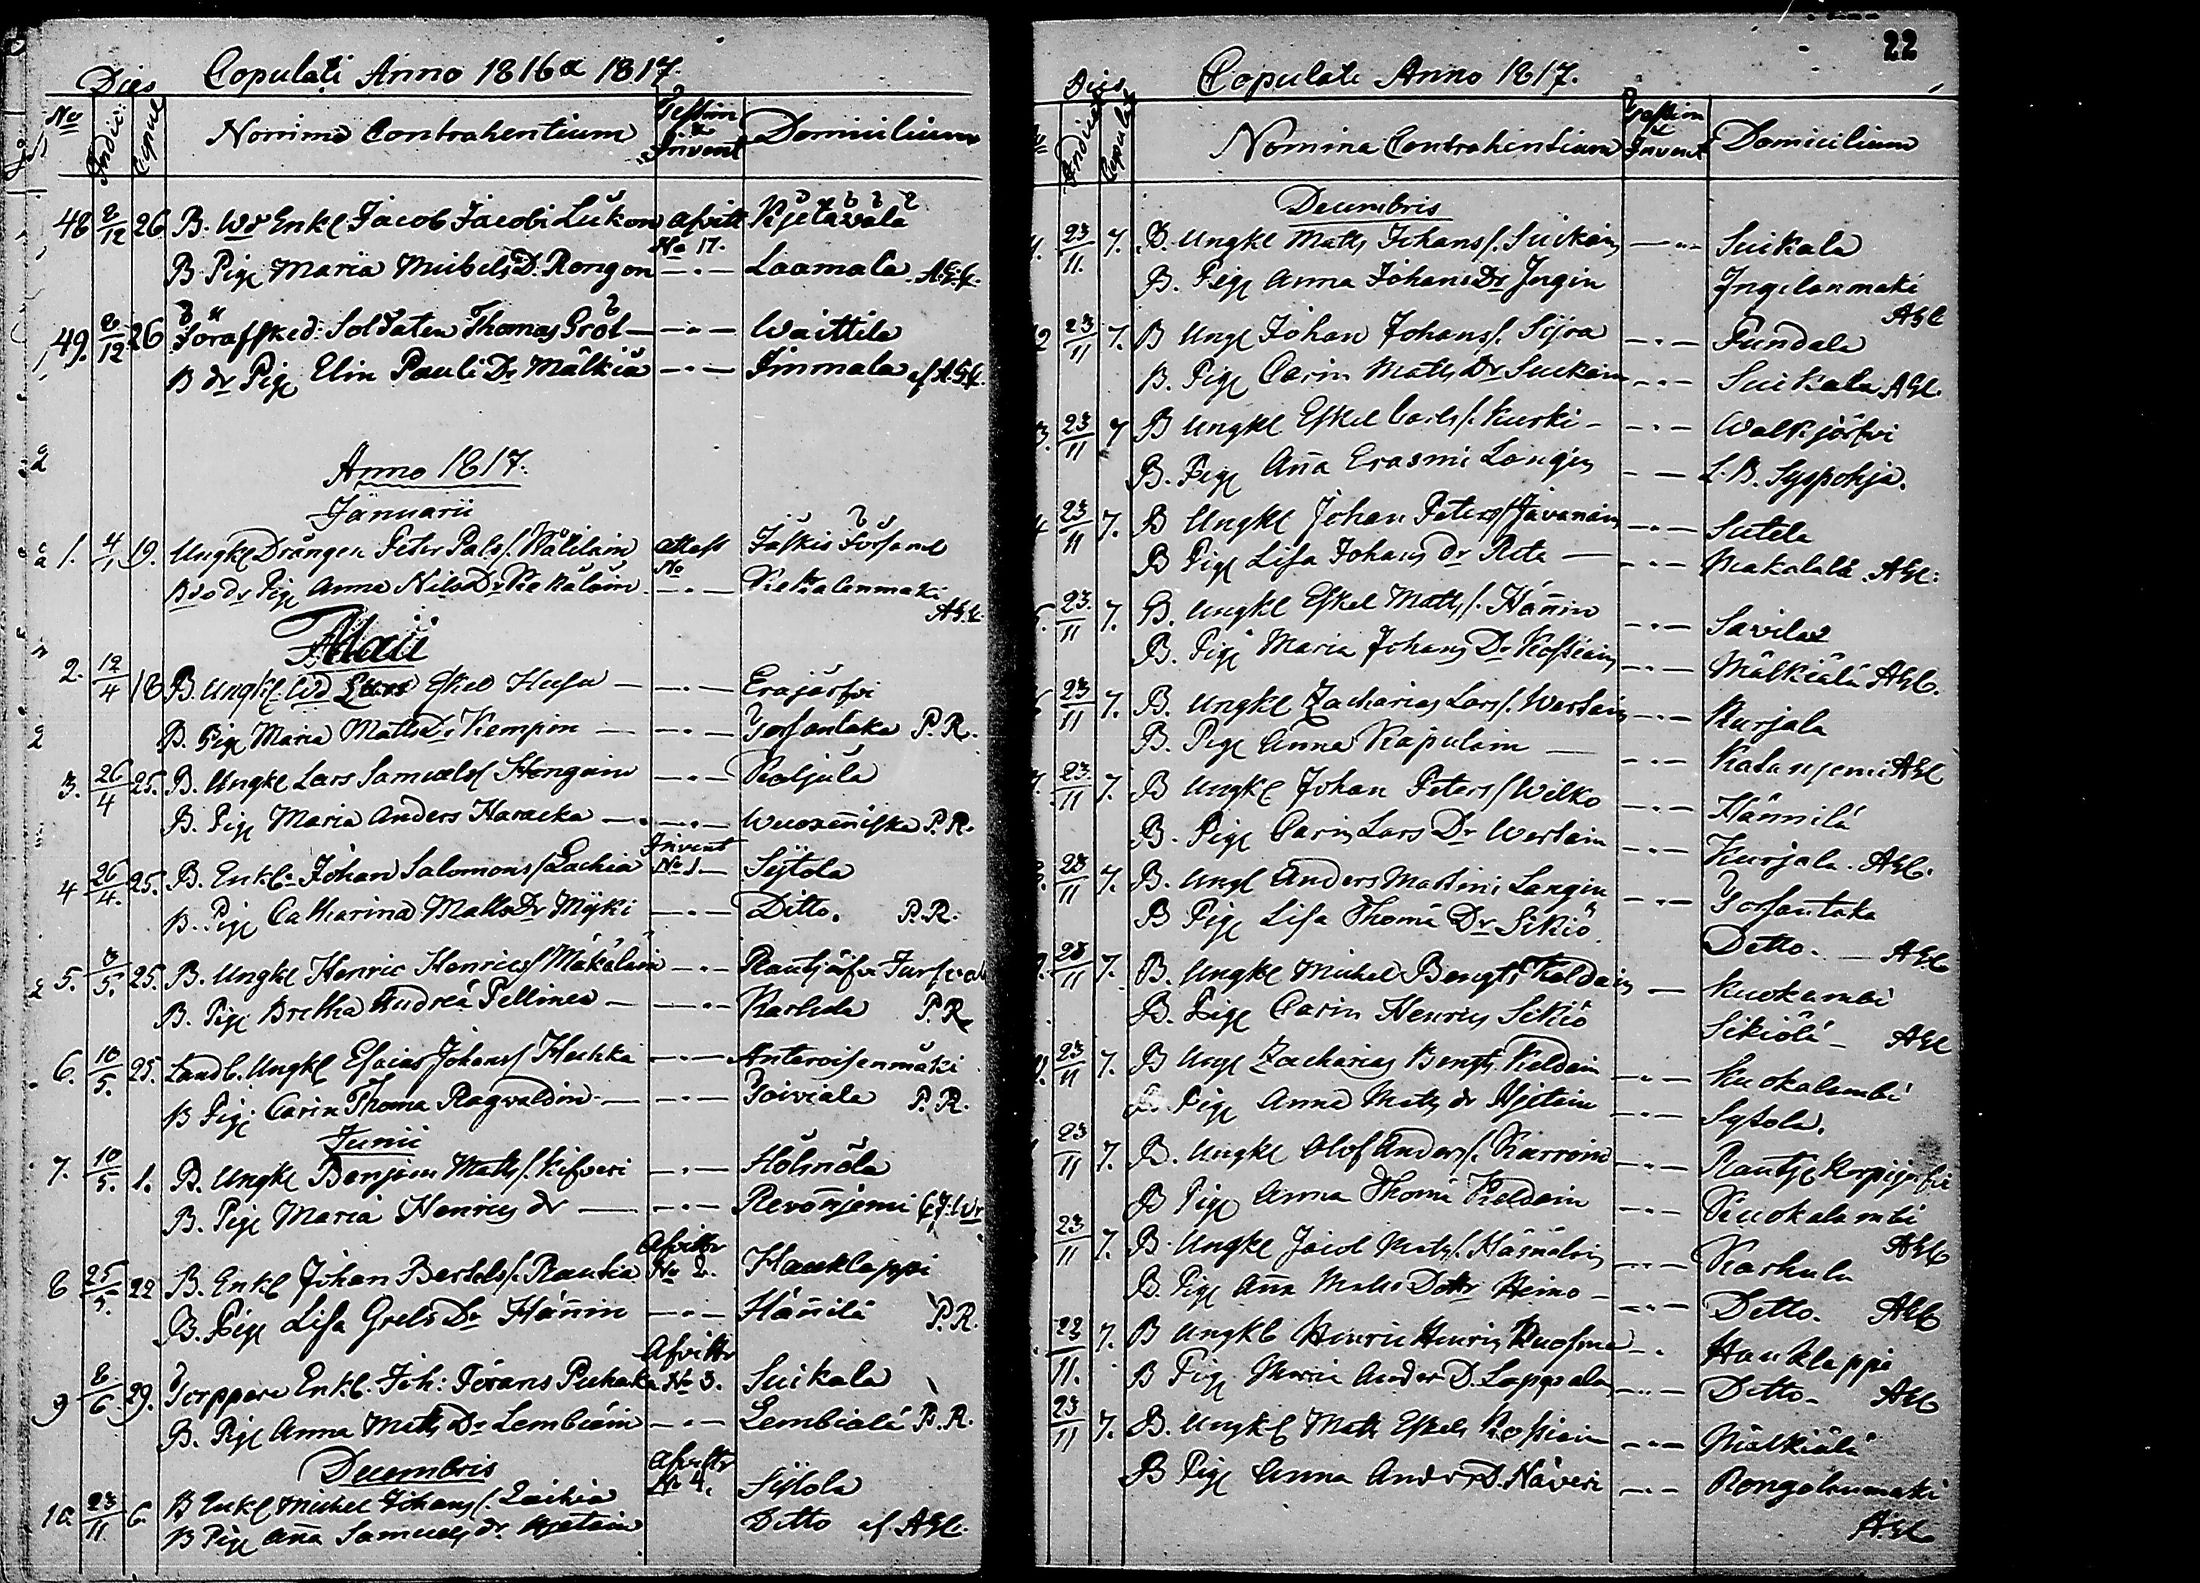 Copulati Anno 1816 & 1817.
Dies
No Indict: Copul Nomina Contrahentium Testim & Invent Domicilium
48 8/12 26 B. Wd Enkl Jacob Jacobi Lukon afvitt Kjetäwälä
No 17.
B. Pige Maria Michels D. Rongon —〃— Laamala A.G.C.
49. 8/12 26 Förafsked: Soldaten Thomas Gröt —〃— Waittila
B dr Pige Elin Pauli Dr Mälkiä —〃— Immala af A.G.C.
Anno 1817.
Januarii
1. 4/1 19. Ungkl Drängen Peter Pals s. Wälilain attest Jäskis
No
Pige Anna Nils Dr —〃— A.G.C.
Maii
2. 12/4 18 B. Ungkl. Eskel Husu —〃— Erajärfvi
B. Pige Maria Matts Dr Kempin —〃— Torsantaka P.R.
3. 26/4 25. B. Ungkl Lars Samuels s. Hongain —〃— Koljola
B. Pige Maria Anders Haracka —〃— Wuoxenniska P.R.
Invent
4 26/4. 25. B. Enkl. Johan Salomons s. Lachia No 1 — Sytola
B. Pige Catharina Matts Dr Myki —〃— Ditto. P.R.
5. 3/5. 25. B. Ungkl Henric Henrics s. Mäkäläin —〃— Rautjärfvi
B. Pige Bretha Andreä Pellinen —〃— Karhula P.R.
6. 10/5. 25. Landb. Ungkl Esaias Johans s. Huhka —〃— Anteroisenmäki
B Pige Carin Thoma Ragvaldin —〃— Toiviala P.R.
Junii
7. 10/5. 1. B. Ungkl Benjam Matts s. Kifveri —〃— Hölnölä
B. Pige Maria Henrics dr —〃— Revonnjemi
Afvittr
8 25/5. 22 B. Enkl Johan Bertels s. Rautia No 2. Haukلappi
B. Pige Lisa Grels Dr Hännin —〃— Hännilä P.R.
Afvittr
9 8/6. 29. Torppare Enkl. Joh: Jörans Puhaka No 3. Suikala
B. Pige Anna Matts Dr Lembiäin —〃— Lembiälä P.R.
Decembris Afvittr
10. 23/11. 6. B Enkl Michel Johans s. Laihia No 4. Sytola
B Pige Anna Samuels dr Hjetain Ditto af AGC.
22
Dies Copulati Anno 1817.
Indict Copulat Nomina Contrahentium Testim & Invent Domicilium
Decembris
23/11. 7. B. Ungkl Matts Johans s. Suikain —〃— Suikala
B. Pige Anna Johans Dr Ingin Ingilanmäki
AGC
2 23/11 7. B Ungl Johan Johans s. Sijra —〃— Pundala
B. Pige Carin Matts Dr Suikain —〃— Suikala AGC.
3. 23/11 7 B Ungkl Eskel Carls s. Kurki —〃— Walkjärfvi
B. Pige Anna Erasmi Longin — — L.B. Syspohja.
4 23/11 7. B Ungkl Johan Peters s. Javanain —〃— Sutela
B Pige Lisa Johans Dr Reta —〃— Makalala AGC:
5. 23./11 7. B. Ungkl Eskel Matts s. Hännin —〃— Savilax
B. Pige Maria Johans Dr Kossiain —〃— Mälkiälä AGC.
23/11 7. B. Ungkl Zacharias Lars s. Wertain —〃— Kurjala
B. Pige Anna Kapulain —〃— AGC
23./11 7. B Ungkl Johan Peters s. Wilko —〃— Hännilä
B. Pige Carin Lars Dr Wertain —〃— Kurjala. AGC.
23/11 7. B. Ungl Anders Martini Langin —〃— Torsantaka
B Pige Lisa Thomä Dr Sikiö Ditto. — AGC
23/11 7. B. Ungkl Michel Bengts Keldain — Kuokambi
B. Pige Carin Henrics Sikiö Sikiölä — AGC
23/11 7. B Ungl Zacharias Bengts Keldain —〃— Kuokalambi
B. Pige Anna Matts dr Hjetain —〃— Sytola.
23/11 7. B. Ungkl Olof Anders s. Karroin —〃— Rautj: Korpijärfvi
B Pige Anna Thomä Keldain —〃— Kuokalambi
AGC
23/11 7. B. Ungkl Jacob Matts s. —〃— Karhula
B. Pige Anna Matts Dottr Heino —〃— Ditto. AGC
23/11. 7. B Ungkl Henric Henrics Kuosma —〃 Hauklappi
B Pige Maria Anders D. —〃— Ditto — AGC
23/11 7. B. Ungkl Matts Eskels Kossiain —〃— Mälkiälä
B Pige Anna Anders D. Häveri —〃— Rongolanmäki
AGC